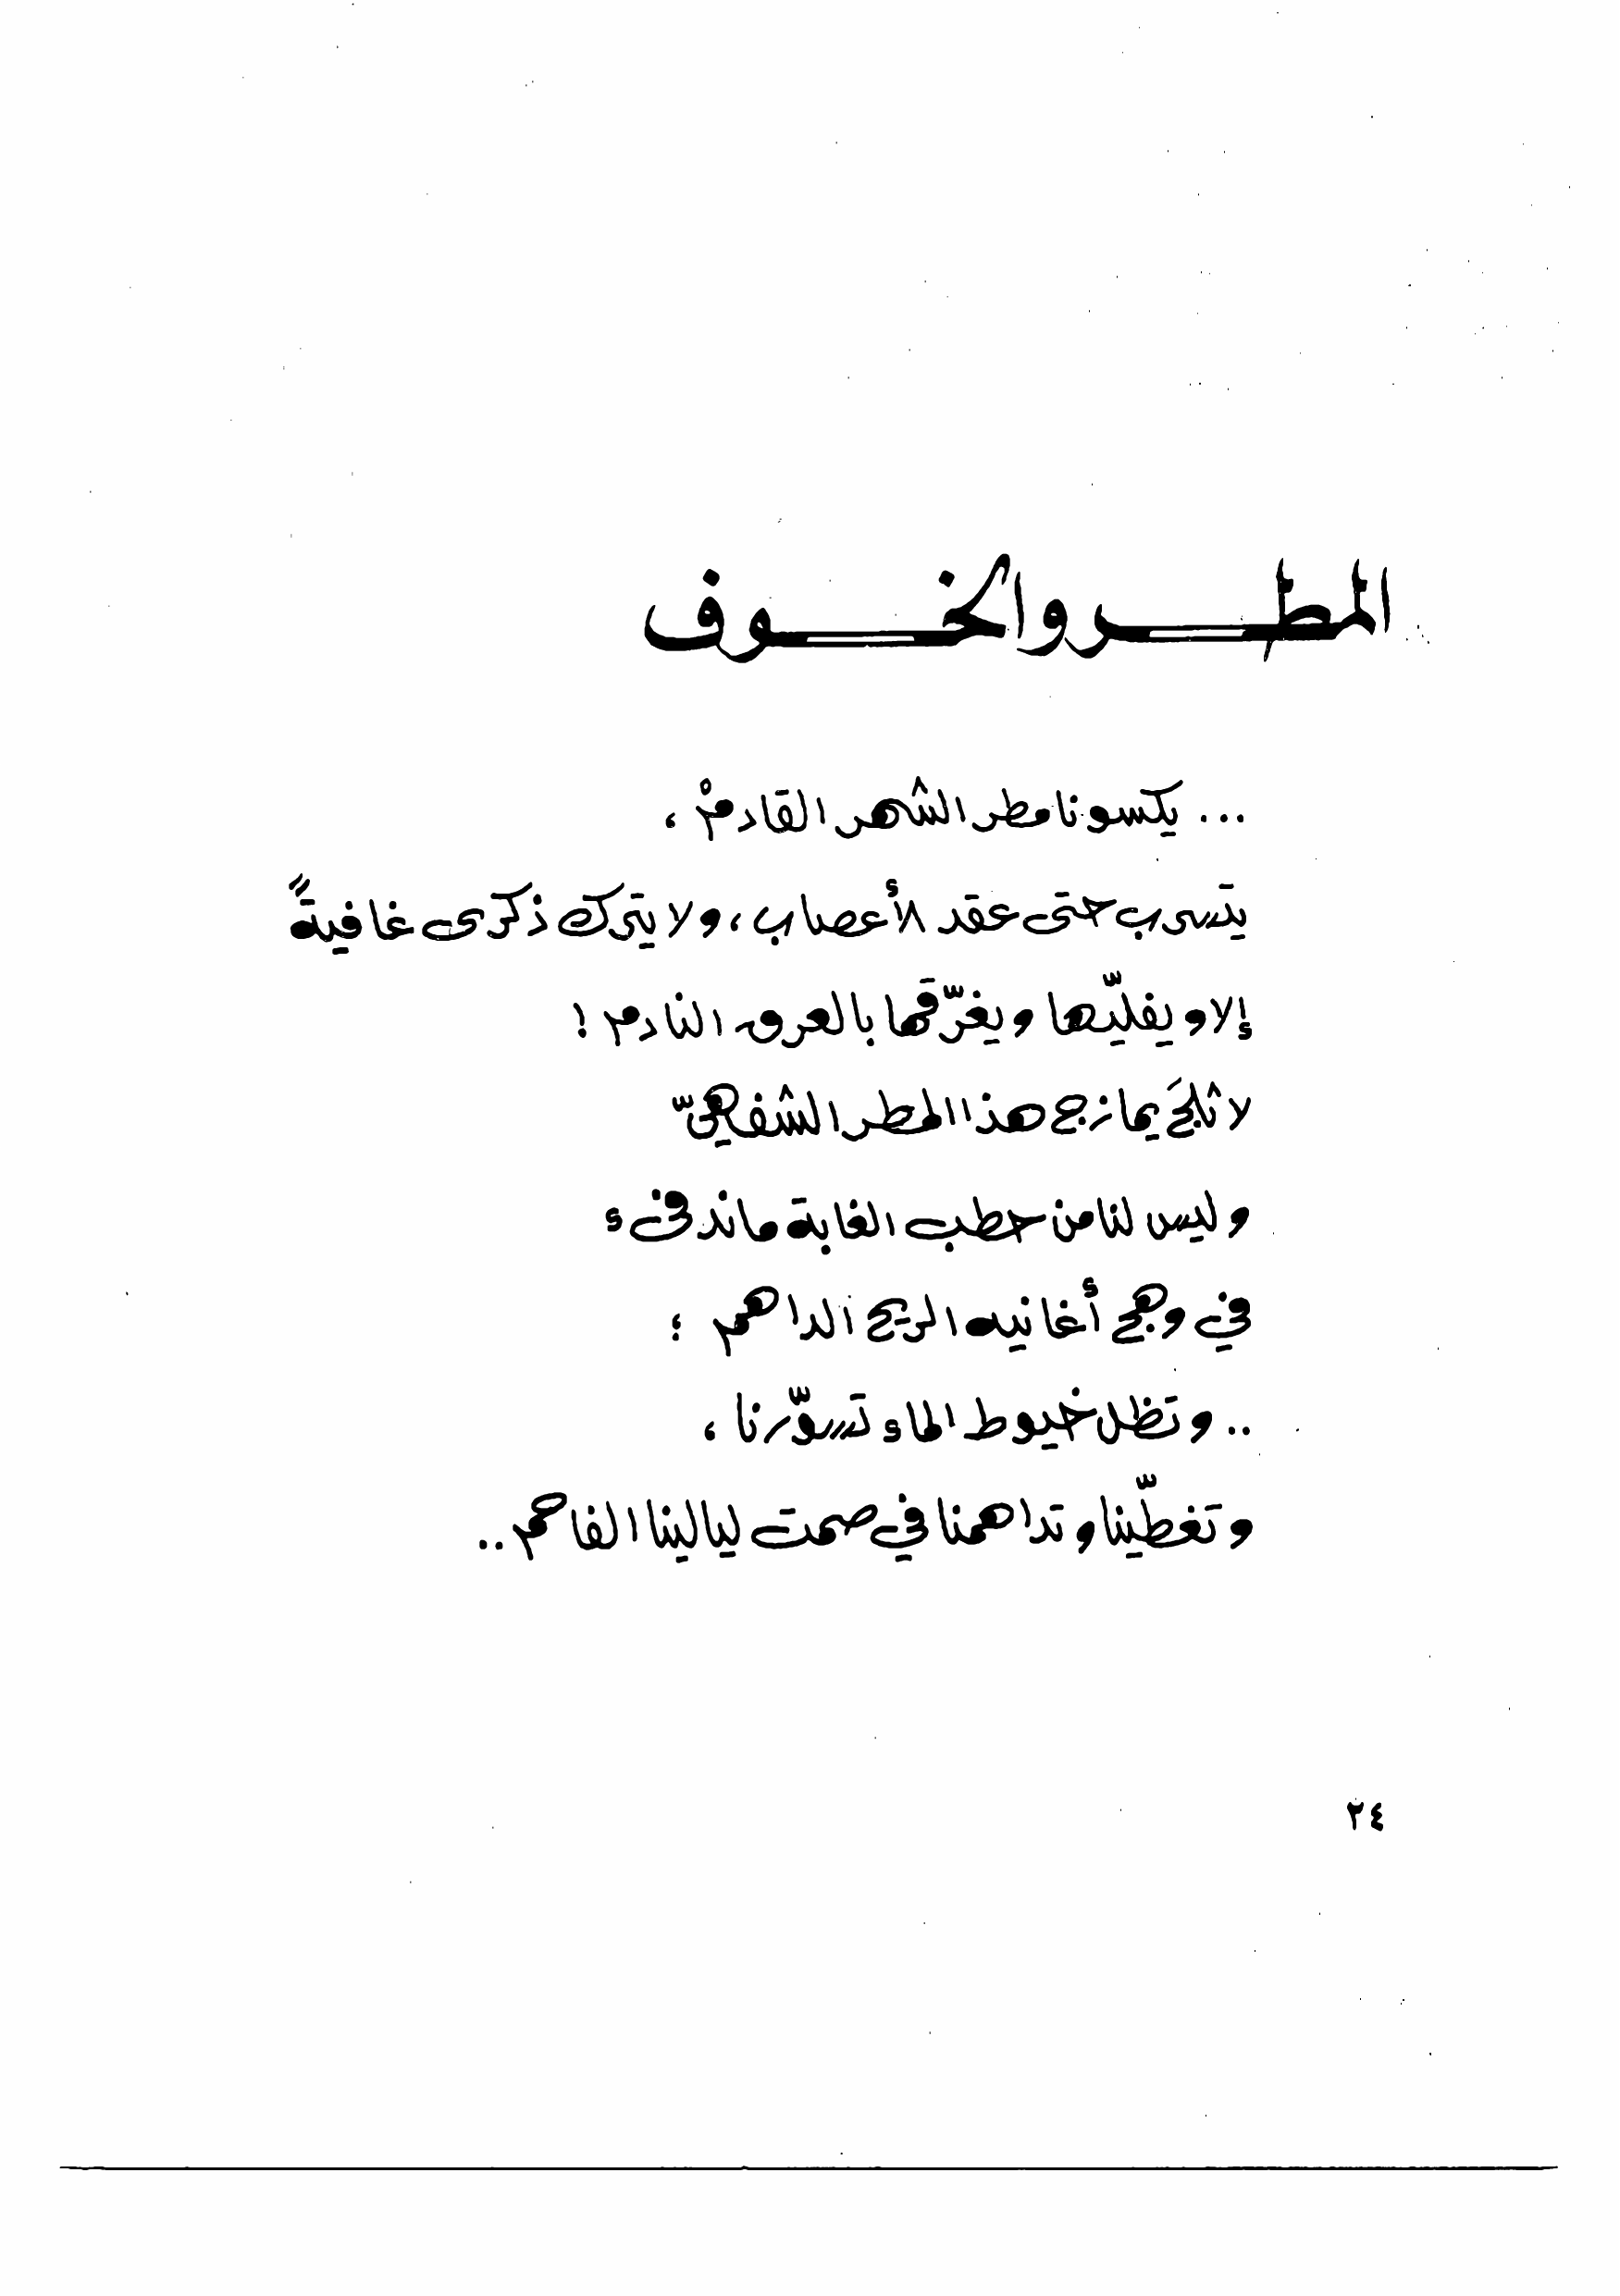 المطر والخوف
... يكسونا مطر الشهر القادمْ ،
يتسرب حتى عقد الأعصاب ، ولا يترك ذكرى غافيةً
إلا ويفليّها ويغرّقها بالعرق النادم !
لا ثلجَ يمازج هذا المطر الشفهيّ
وليس لنا من حطب الغابة ما ندفىء
في وهج أغانيه الريح الداهم ؛
.. وتظل خيوط الماء تسوّرنا ،
وتغطّينا وتداهمنا في صمت ليالينا الفاحم ..
٢٤